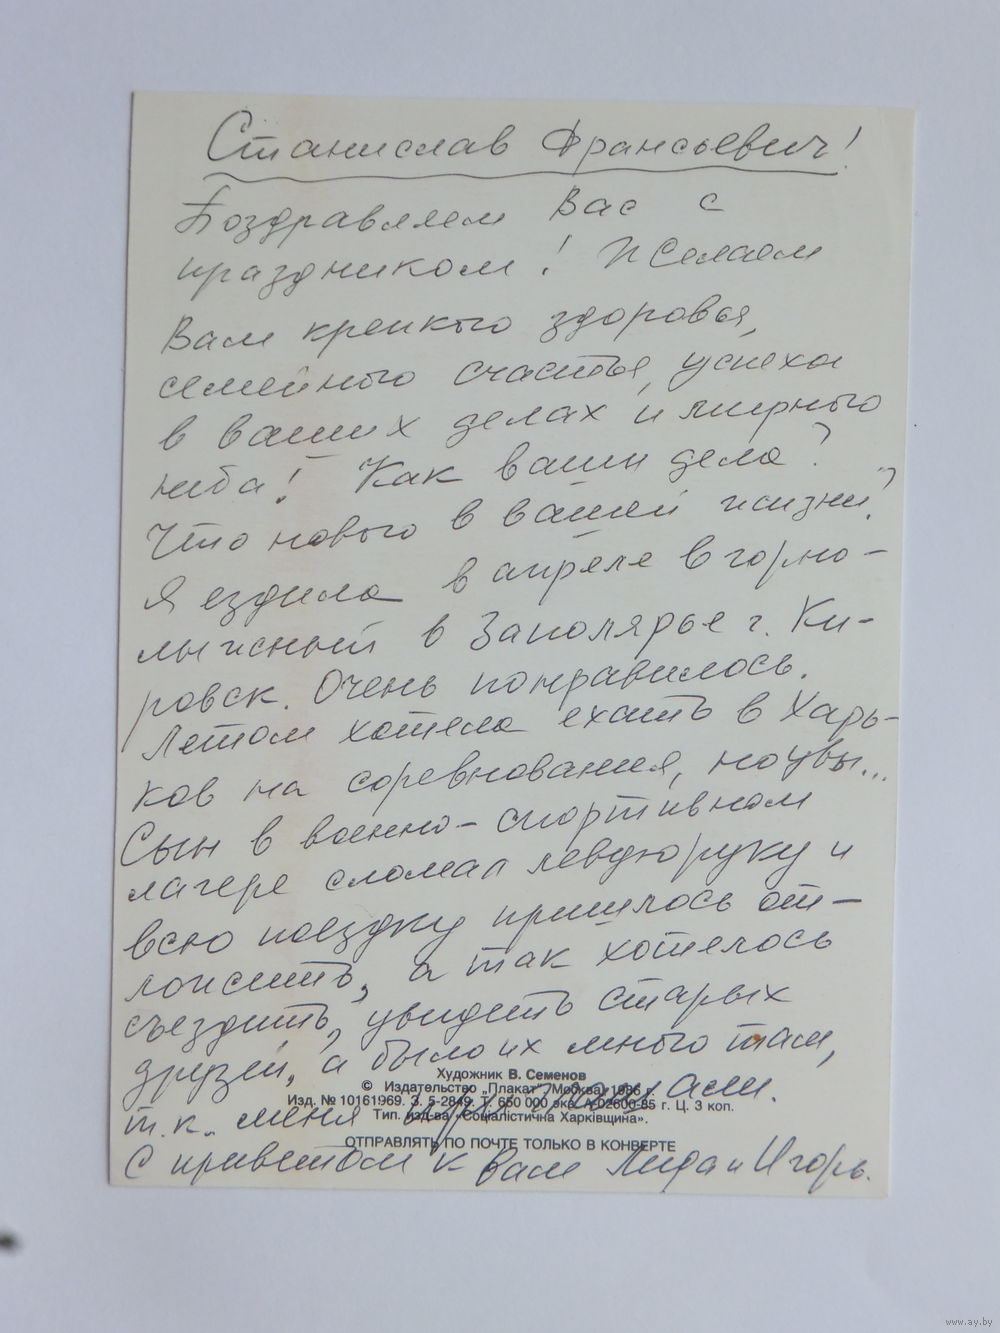 Станислав Франсьевич!
Поздравляем Вас с
праздником! Желаем
Вам крепкого здоровья,
семейного счастья, успехов
в ваших делах и мирного
неба! Как ваши дела?
Что нового в вашей жизни?
Я ездила в апреле в горно-
лыжный в Заполярье г. Ки-
ровск. Очень понравилось.
Летом хотела ехать в Харь-
ков на соревнования, но увы...
Сын в военно-спортивном
лагере сломал левую руку и
всю поездку пришлось от-
ложить, а так хотелось
съездить, увидеть старых
друзей, а было их много там,
Художник В. Семенов
© Издательство „Плакат", Москва, 1986 г.
Изд. № 10161969. З. 5-2849. Т. 650 000 экз. А 02600-85 г. Ц. 3 коп.
т.к. меня
Тип. изд-ва «Соціалістична Харківщина».
ОТПРАВЛЯТЬ ПО ПОЧТЕ ТОЛЬКО В КОНВЕРТЕ
С приветом к Вам Лида и Игорь.
www.ay.by